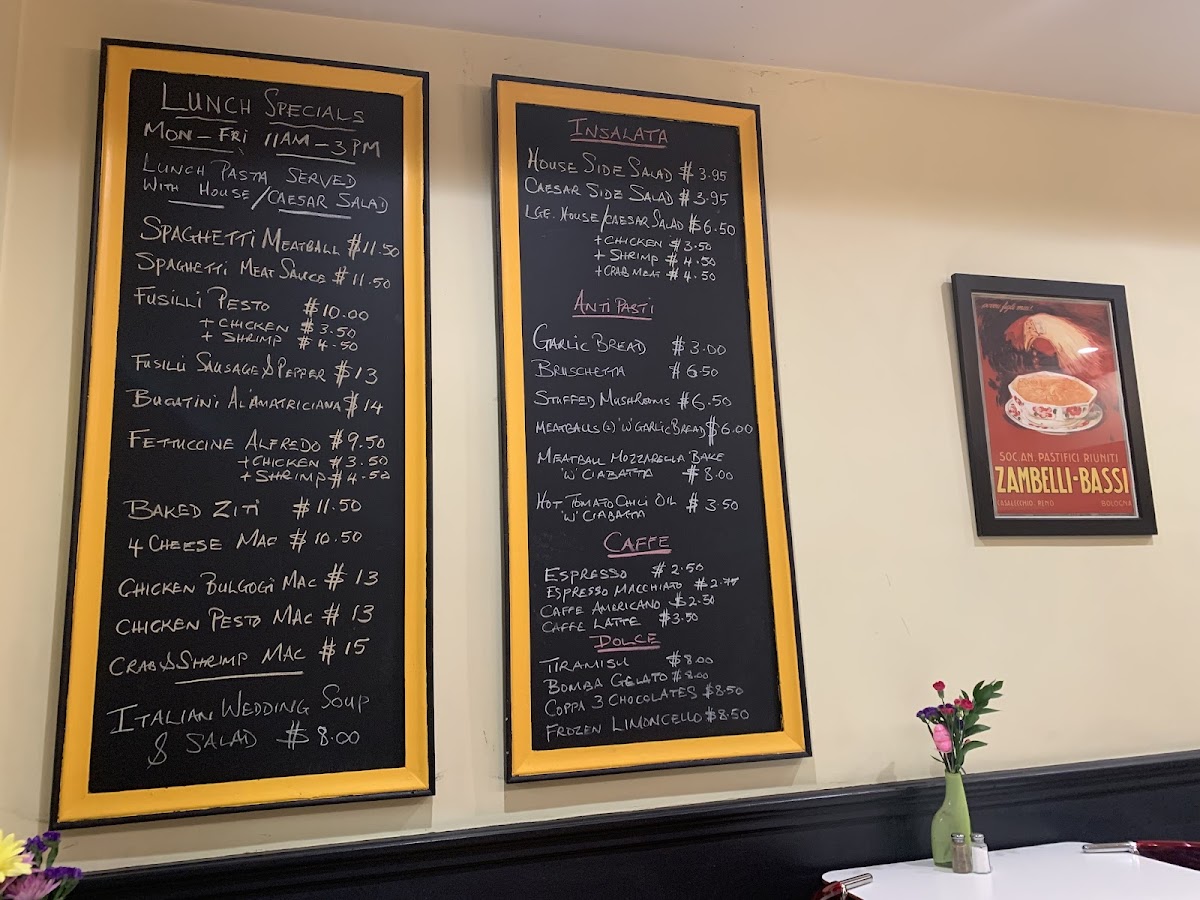 LUNCH SPECIALS
MON - FRI 11AM - 3PM
LUNCH PASTA SERVED
WITH HOUSE / CAESAR SALAD
SPAGHETTI MEATBALL $11.50
SPAGHETTI MEAT SAUCE $11.50
FUSILLI PESTO $10.00
+ CHICKEN $3.50
+ SHRIMP $4.50
FUSILLI SAUSAGE & PEPPER $13
BUCATINI ALAMATRICIANA $14
FETTUCCINE ALFREDO $9.50
+ CHICKEN $3.50
+ SHRIMP $4.50
BAKED ZITI $11.50
4 CHEESE MAC $10.50
CHICKEN BULGOGI MAC $13
CHICKEN PESTO MAC $13
CRAB & SHRIMP MAC $15
ITALIAN WEDDING SOUP
& SALAD $8.00
INSALATA
HOUSE SIDE SALAD $3.95
CAESAR SIDE SALAD $3.95
LGE. HOUSE/CAESAR SALAD $6.50
+ CHICKEN $3.50
+ SHRIMP $4.50
+ CRAB MEAT $4.50
ANTIPASTI
GARLIC BREAD $3.00
BRUSCHETTA $6.50
STUFFED MUSHROOMS $6.50
MEATBALLS (2) 'W' GARLIC BREAD $6.00
MEATBALL MOZZARELLA BAKE
'W' CIABATTA $8.00
HOT TOMATO CHILI OIL $3.50
'W' CIABATTA
CAFFE
ESPRESSO $2.50
ESPRESSO MACCHIATO $2.75
CAFFE AMERICANO $2.50
CAFFE LATTE $3.50
DOLCE
TIRAMISU $8.00
BOMBA GELATO $8.00
COPPA 3 CHOCOLATES $8.50
FROZEN LIMONCELLO $8.50
SOC. AN. PASTIFICI RIUNITI
ZAMBELLI-BASSI
CASALECCHIO RENO BOLOGNA